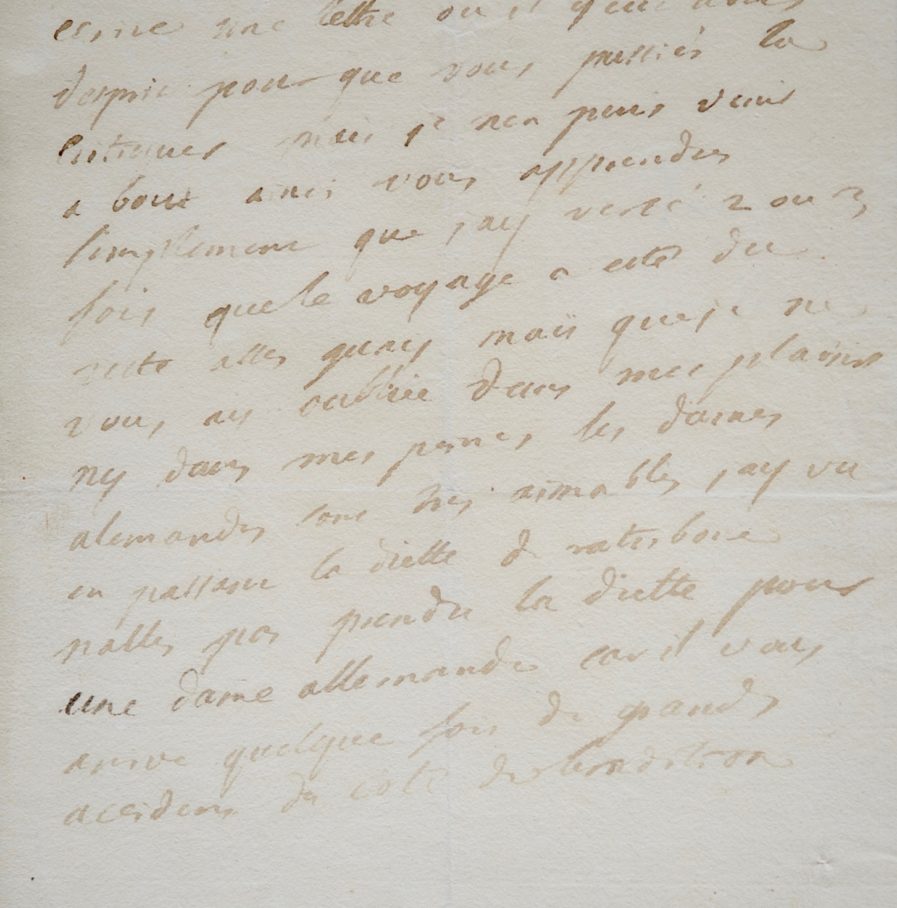 une lettre ou il
desprit pour que vous pussiés la
critiquer mais je nen puis venir
a bout ainsi vous apprendrez
simplement que jay versé 2 ou 3
fois que le voyage a estes du
reste asses guay mais que je ne
vous ais oubliée dans mes plaisirs
ny dans mes peines les dames
alemandes sont tres aimables jay vu
en passant la diette de ratisbone
nalles pas prendre la diette pour
une dame allemande car il vous
arrive quelque fois de grands
accidens du coté de lerudition